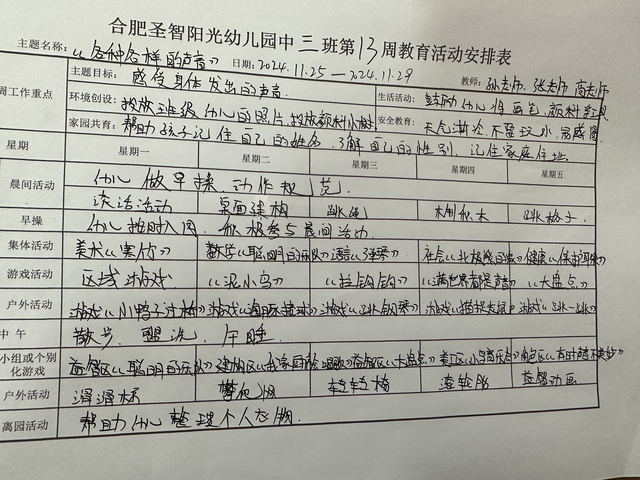 合肥圣智阳光幼儿园中三班第13周教育活动安排表
主题名称:《各种各样的声音》 日期:2024.11.25—2024.11.29 教师:孙老师、张老师 高老师
周工作重点 主题目标:感受身体发出的声音
环境创设:投放班级幼儿的照片,投放颜料 生活活动:鼓励幼儿 画笔,颜料
家园共育:帮助孩子记住自己的姓名,了解自己的性别,记住家庭住址. 安全教育:天气渐冷不要玩水,易感冒
星期 星期一 星期二 星期三 星期四 星期五
晨间活动 幼儿做早操动作规范.
谈话活动 桌面建构 跳绳 木制积木 跳格子
早操 幼儿按时入园,积极参与晨间活动
集体活动 美术《寒竹》 数学《聪明的乐队》 语言《 》 社会《 》 健康《保护耳朵》
游戏活动 区域游戏 《泥小鸟》 《拉钩钩》 《满世界都是声音》 《大盘点》
户外活动 游戏《小鸭子过桥》 游戏《海豚 球》 游戏《跳钢琴》 游戏《猫捉老鼠》 游戏《跳一跳》
中午 散步、盥洗、午睡
小组或个别化游戏 益智区《聪明的乐队》 建构区《我家 》 益智区《大盘点》 美工区《小鸟音乐会》 角色区《 》
户外活动 滑滑梯 攀爬网 轮胎 益智动画
离园活动 帮助幼儿整理个人衣物.